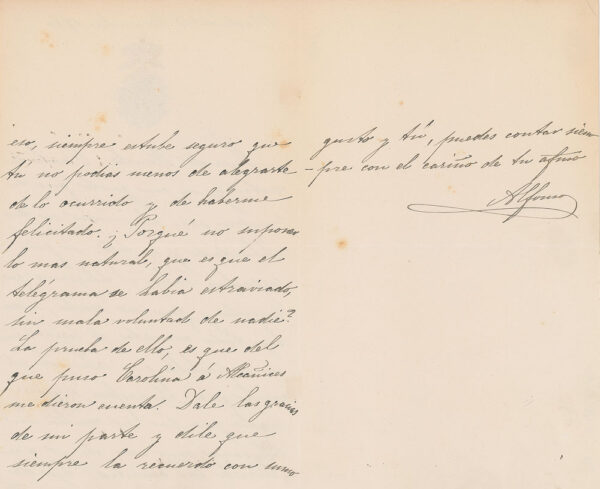 eso, siempre estube seguro que
tu no podias menos de alegrarte
de lo ocurrido y de haberme
felicitado. ¿Porqué no suponer
lo mas natural, que es que el
telégrama se habia estraviado,
sin mala voluntad de nadie?
La prueba de ello, es que del
que puso Carolina á Alcañices
me dieron cuenta. Dale las gracias
de mi parte y dile que
siempre la recuerdo con sumo
gusto y tú, puedes contar siem
-pre con el cariño de tu afmo
Alfonso